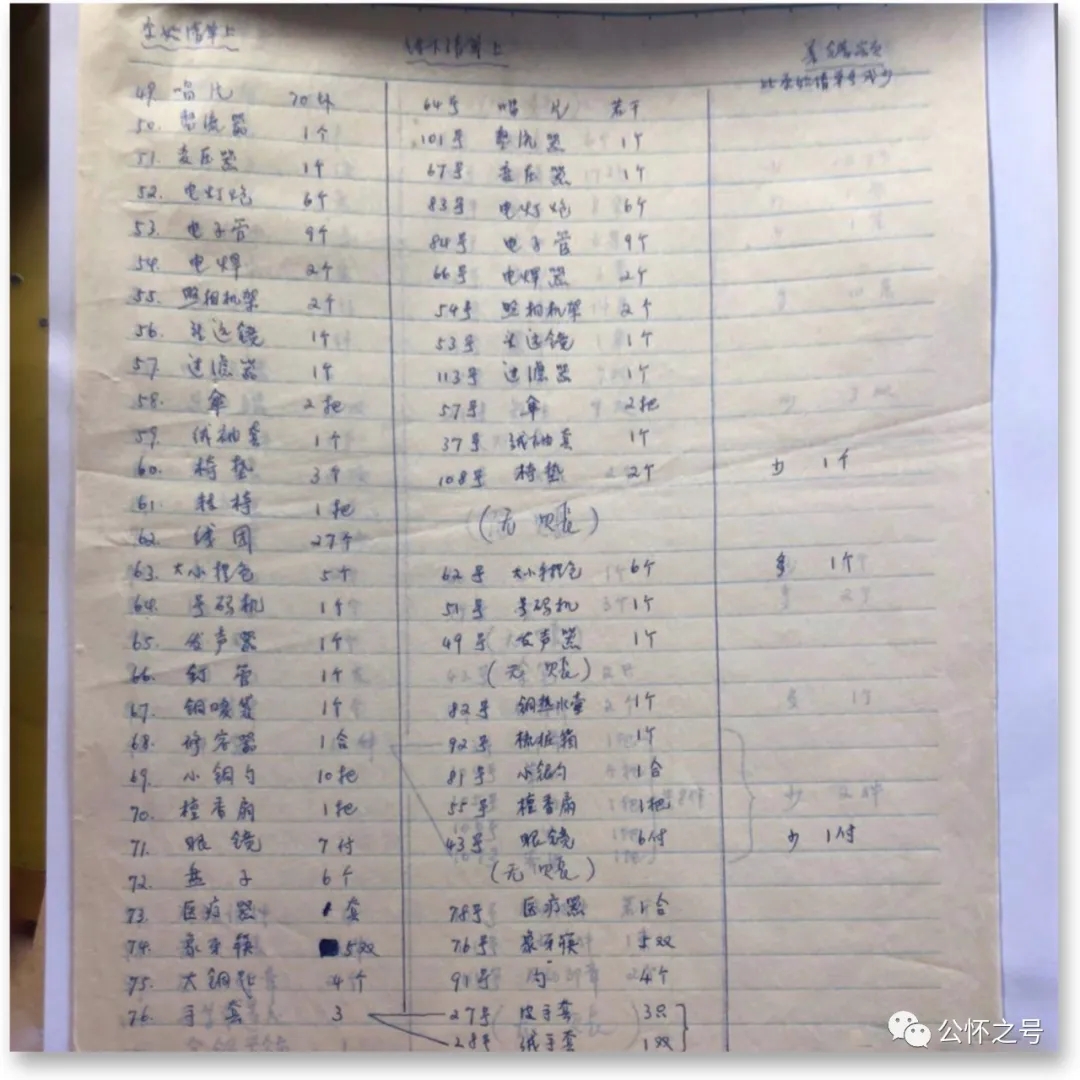 查抄清单上 清单上
比查抄清单多或少
49. 唱片 70张 64号 唱片 若干
50. 整流器 1个 101号 整流器 1个
51. 变压器 1个 67号 变压器 1个
52. 电灯炮 6个 83号 电灯炮 6个
53. 电子管 9个 84号 电子管 9个
54. 电焊 2个 66号 电焊器 2个
55. 照相机架 2个 54号 照相机架 2个
56. 望远镜 1个 53号 望远镜 1个
57. 过滤器 1个 113号 过滤器 1个
58. 伞 2把 57号 伞 2把
59. 绒袖套 1个 37号 绒袖套 1个
60. 椅垫 3个 108号 椅垫 2个 少 1个
61. 转椅 1把
(无 账)
62. 线团 27个
63. 大小提包 5个 62号 大小手提包 6个 多 1个
64. 号码机 1个 51号 号码机 1个
65. 发声器 1个 49号 发声器 1个
66. 钉管 1个 (无 账)
67. 铜暖 1个 82号 铜热水壶 1个
68. 修容器 1合 92号 梳桩箱 1个
69. 小铜勺 10把 81号 小铜勺 1合
70. 檀香扇 1把 55号 檀香扇 1把
71. 眼镜 7付 43号 眼镜 6付 少 1付
72. 盘子 6个 (无 账)
73. 医疗器 套 78号 医疗器 1合
74. 象牙筷 5双 76号 象牙筷 5双
75. 大铜匙 4个 91号 勺 4个
76. 手套 3 27号 皮手套 3只
28号 绒手套 1双
公怀之号